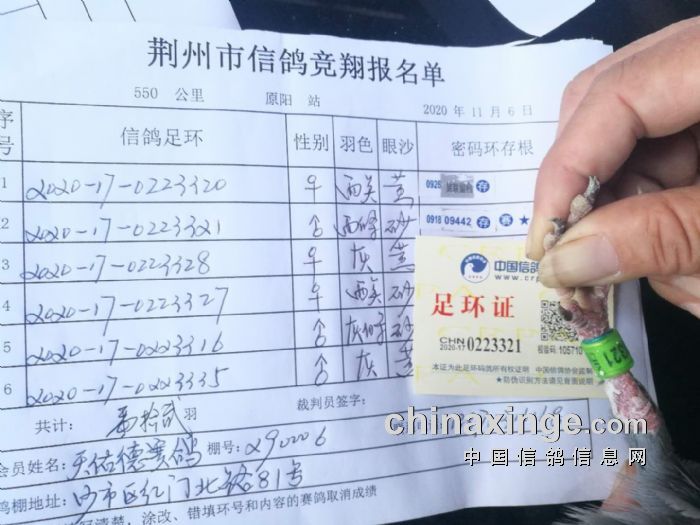 荆州市信鸽竞翔报名单
550 公里 原阳 站 2020 年 11 月 6 日
序号 信鸽足环 性别 羽色 眼沙 密码环存根
1 2020-17-0223320 ♀ 黄 0926 存
2 2020-17-0223321 ♂ 砂 0918 09442 存 赛 ★
3 2020-17-0223328 ♀ 灰 黄
4 2020-17-0223327 ♀ 砂
5 2020-17-0223316 ♂ 砂
6 2020-17-0223335 ♂ 灰 黄
中国信鸽
www.crp
足环证
CHN
2020-17 0223321
校验码:105710
本证为此足环码鸽所有权证明 中国信鸽协会监制
★防伪识别方法请见背面说明
321
共计: 拾贰 羽 裁判员签字:
会员姓名: 天佑德赛鸽 棚号: 290006
鸽棚地址: 沙市区红门北路81号
写清楚，涂改、错填环号和内容的赛鸽取消成绩
chinaxinge.com
中国信鸽信息网